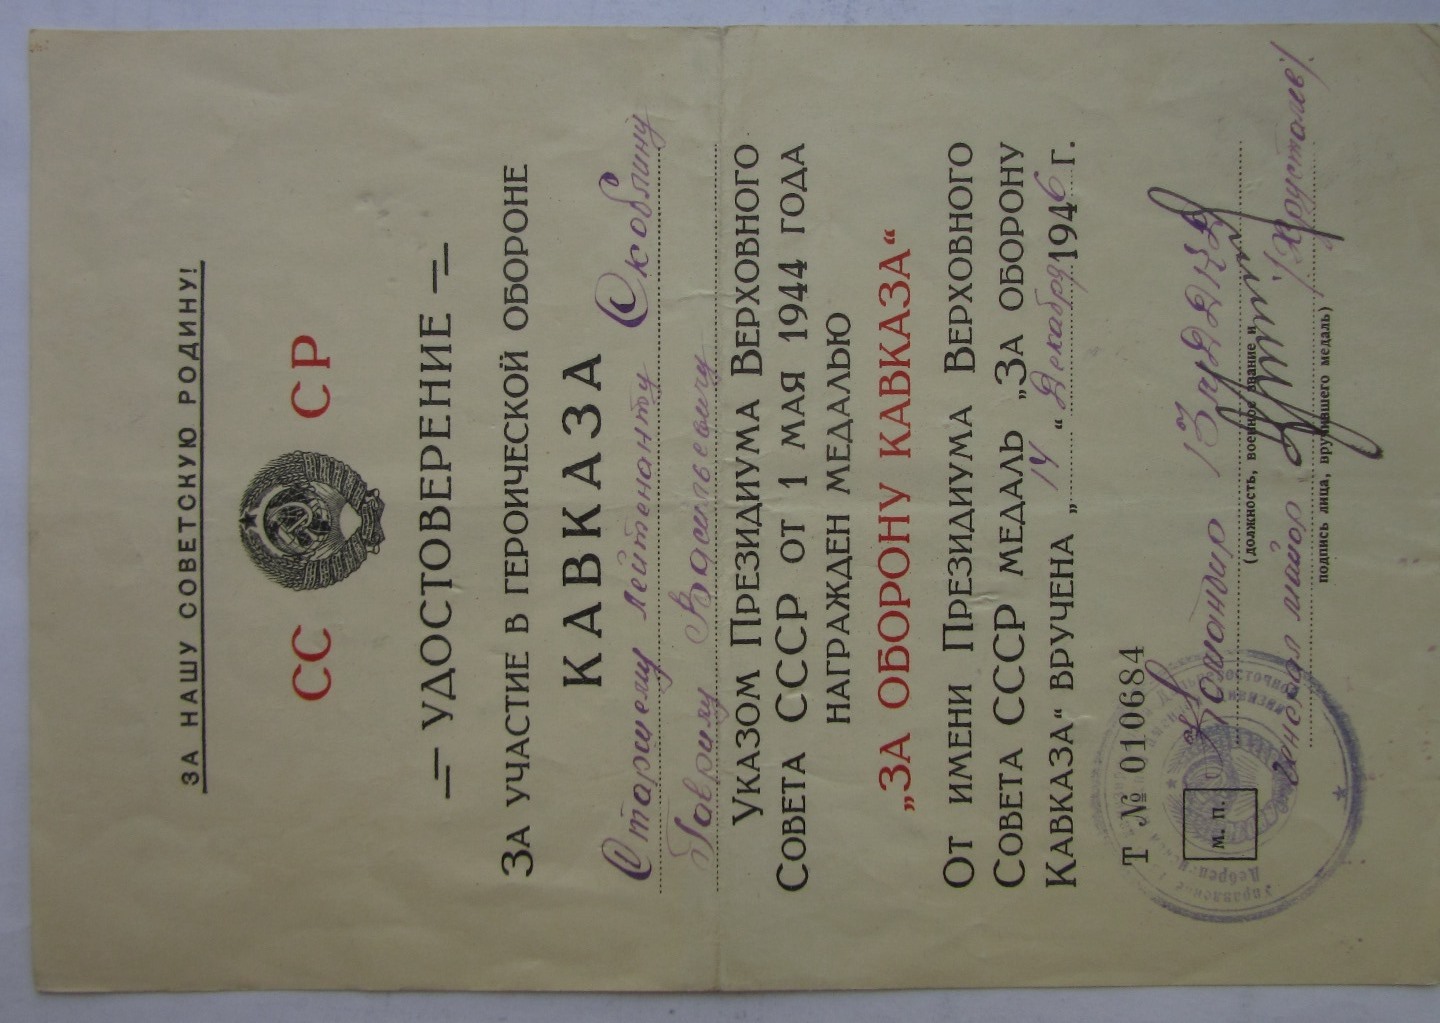 ЗА НАШУ СОВЕТСКУЮ РОДИНУ!
СС СР
УДОСТОВЕРЕНИЕ
ЗА УЧАСТИЕ В ГЕРОИЧЕСКОЙ ОБОРОНЕ
КАВКАЗА
Старшему лейтенанту Скоблину
Гаврилу Васильевичу
УКАЗОМ ПРЕЗИДИУМА ВЕРХОВНОГО
СОВЕТА СССР ОТ 1 МАЯ 1944 ГОДА
НАГРАЖДЕН МЕДАЛЬЮ
„ЗА ОБОРОНУ КАВКАЗА“
ОТ ИМЕНИ ПРЕЗИДИУМА ВЕРХОВНОГО
СОВЕТА СССР МЕДАЛЬ „ЗА ОБОРОНУ
КАВКАЗА“ ВРУЧЕНА „14“ Декабря 1946 г.
Т № 010684
Командир
м. п.
(должность, военное звание и
майор
подпись лица, вручившего медаль)
Управление
Дебрецен